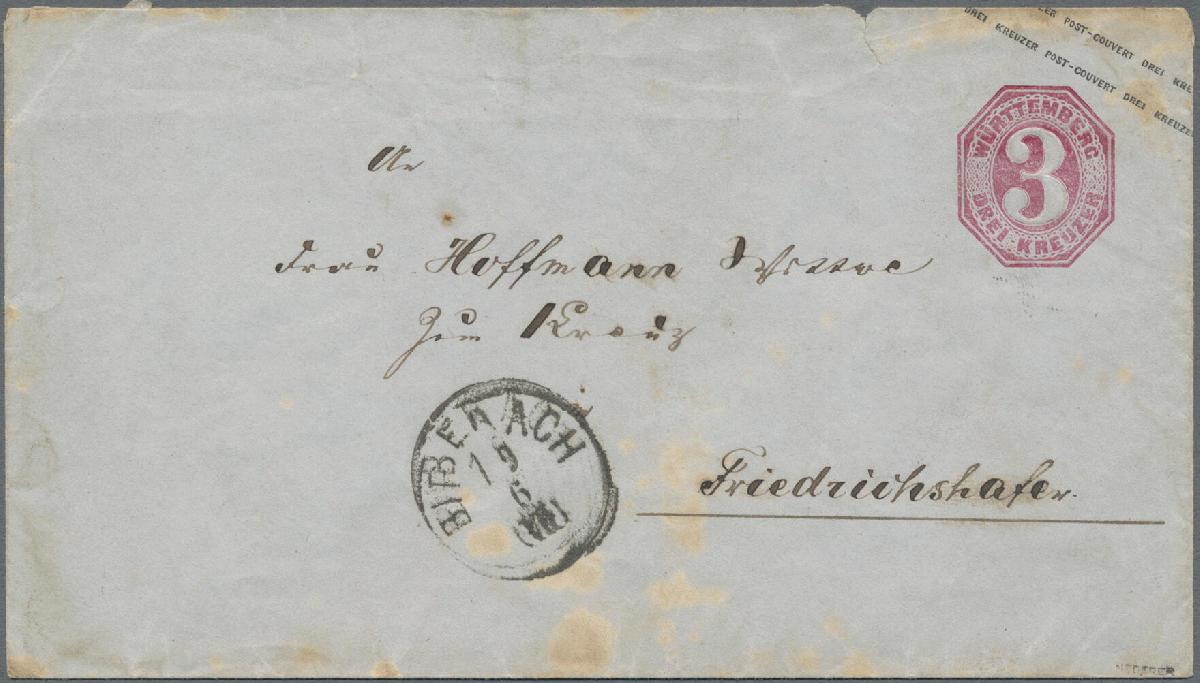 ZER POST-COUVERT DREI KRE
DREI KREUZER POST-COUVERT DREI KREUZE
WÜRTTEMBERG
3
DREI KREUZER
An
Frau Hoffmann Wittwe
zum Kreuz
BIBERACH
Friedrichshafen.